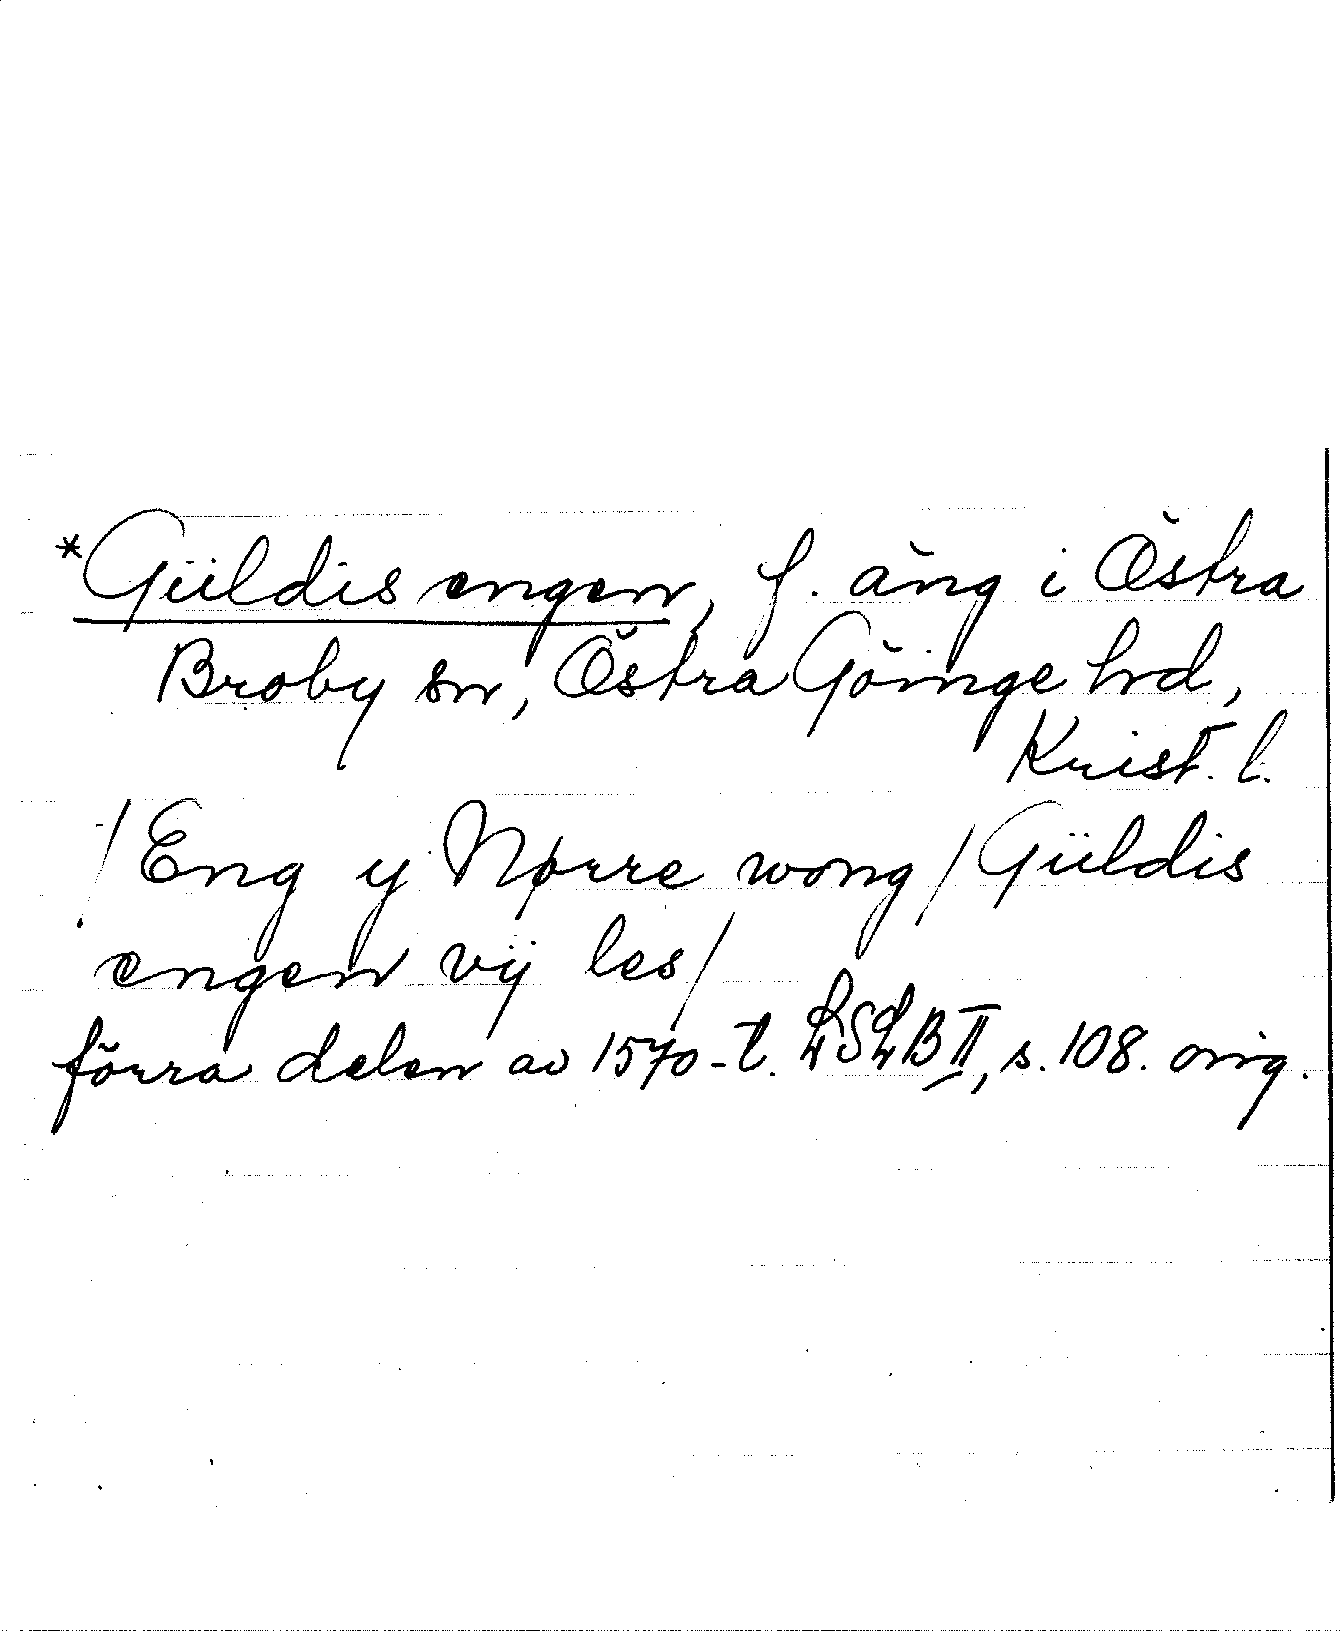 *Güldis engen, f. äng i Östra
Broby sn, Östra Göinge hd,
Krist. l.
/Eng y Nørre wong/Güldis
engen vij les/
förra delen av 1570-t. LSLB II, s. 108. orig.